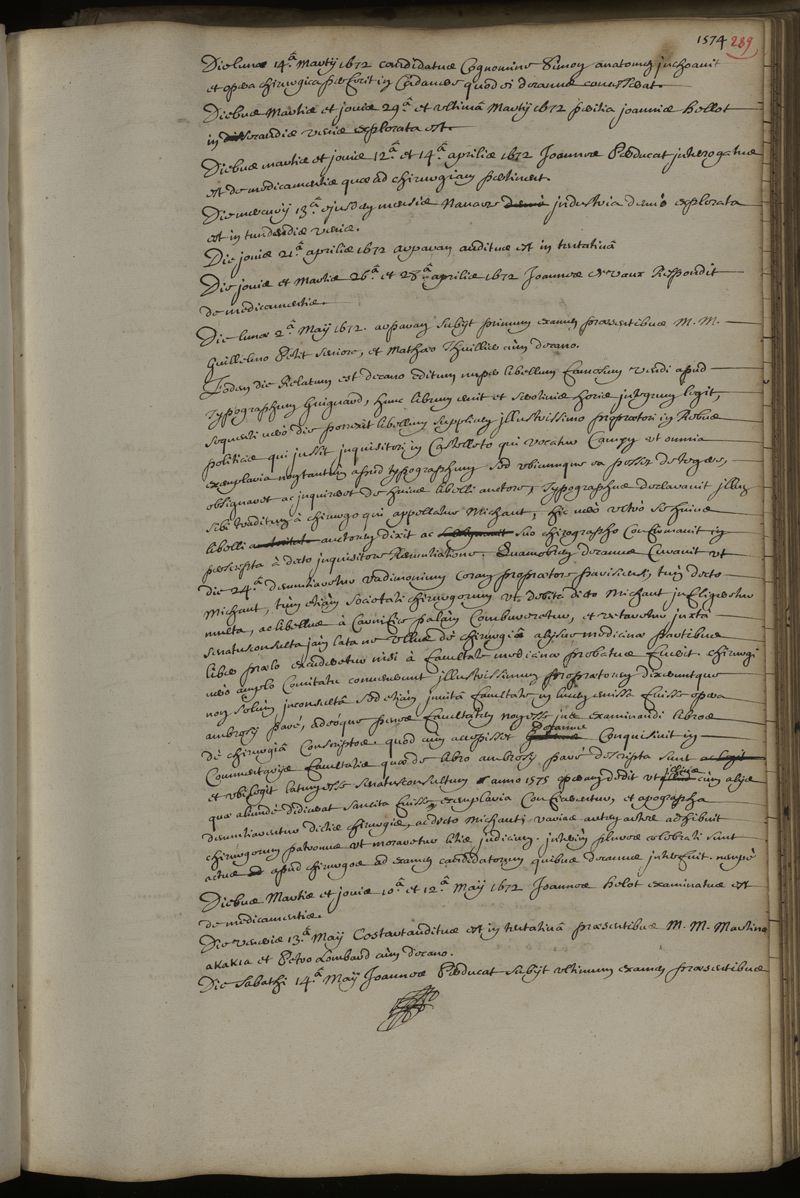 1574 289
Die lunæ 14.ª Martij 1672 candidatus Cognomine Simon anatomen jnchoavit
et opera chirurgica peregit in Cadavere quod ei decanus concesserat.
Diebus Martis et jovis 29.ª et ultimâ Martij 1672 peritia joannis hellot
in secandis venis explorata est.
Diebus martis et jovis 12.ª et 14.ª aprilis 1672 Joannes Præducat jnterrogatus
est de medicamentis quæ ad chirurgiam pertinent.
Die mercurij 13.ª ejusdem mensis Navarre jndustria denuò explorata
est in tundendis venis.
Die jovis 21.ª aprilis 1672 auparan auditus est in tentativâ
Die jovis et Martis 26.ª et 28.ª aprilis 1672 Joannes Respondit
de medicamentis.
Die lunæ 2.ª Maij 1672. auparan subijt primum examen præsentibus M. M.
Guillelmo Petit seniore, et Mathæo Thuillier cùm decano.
Eodem die Relatum est decano editum nuper libellum famosum vendi apud
Typographum Guignard, hunc librum emit et serotinis horis jntegrum legit,
sequenti verò die porrexit libellum supplicem jllustrissimo proprætori in Rebus
politicis qui jussit jnquisitori in Castelleto qui vocatur Campy ut omnia
exemplaria non tantùm apud typographum sed ubicumque ea posset detegere,
obsignaret ac jnquireret de hujus libelli auctore, Typographus declaravit jllum
sibi traditum à chirurgo qui appellatur Michaut, hic verò ultrò se hujus
libelli auctorem dixit ac suo chirographo Confirmavit in
præscripta à dicto jnquisitore Renuntiatione. Quamobrem decanus Curavit ut
die 24.ª denuntiaretur vadimonium coram proprætore parisiensi, tùm dicto
Michaut, tùm etiam societati chirurgorum ut debita dicto Michaut jnfligeretur
mulcta, ac libellus à Carnifice palàm Combureretur, et vetaretur juxtà
senatusconsulta jam lata ne ullus de chirurgiâ alijsve medicinæ partibus
liber prælo excuderetur nisi à facultate medicinæ probatus fuerit. chirurgi
verò amplo Comitatu convenerunt jllustrissimum proprætorem dixeruntque
non solùm jnconsultâ sed etiam jnvitâ facultate in lucem emissa fuisse opera
ambrosij paré, adeóque penes facultatem non esse jus examinandi libros
de chirurgiâ Conscriptos. quod cum accepisset Decanus Conquisivit in
Commentarijs facultatis quæ de libro ambrosij paré descripta sunt
et ubi legit latum esse senatusconsultum anno 1575 operam dedit ut jllius cùm alijs
quæ aliundè didicerat sancita fuisse exemplaria Conficerentur, et apographa
denuntiarentur dictis chirurgis, ac dicto Michaut. varias autem artes adhibuit
chirurgorum patronus ut moraretur litis judicium. jnterim plures celebrati sunt
actus apud chirurgos ad examen candidatorum quibus decanus jnterfuit. nempè
Diebus Martis et jovis 10.ª et 12.ª Maij 1672 Joannes helot examinatus est
de medicamentis.
Die veneris 13.ª Maij Costart auditus est in tentativâ præsentibus M. M. Martino
akakia et Petro Lombard cùm decano.
Die sabathi 14.ª Maij Joannes Præducat subijt ultimum examen præsentibus